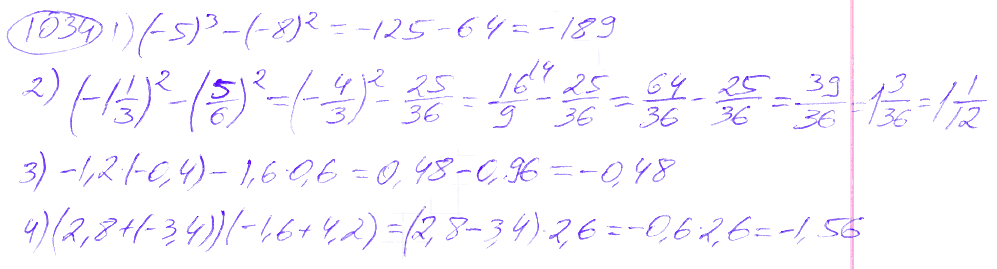 1034 1) (-5)³ - (-8)² = -125 - 64 = -189
2) (-1 1/3)² - (5/6)² = (-4/3)² - 25/36 = 16/9 \4 - 25/36 = 64/36 - 25/36 = 39/36 = 1 3/36 = 1 1/12
3) -1,2·(-0,4) - 1,6·0,6 = 0,48 - 0,96 = -0,48
4) (2,8+(-3,4))·(-1,6+4,2) = (2,8-3,4)·2,6 = -0,6·2,6 = -1,56